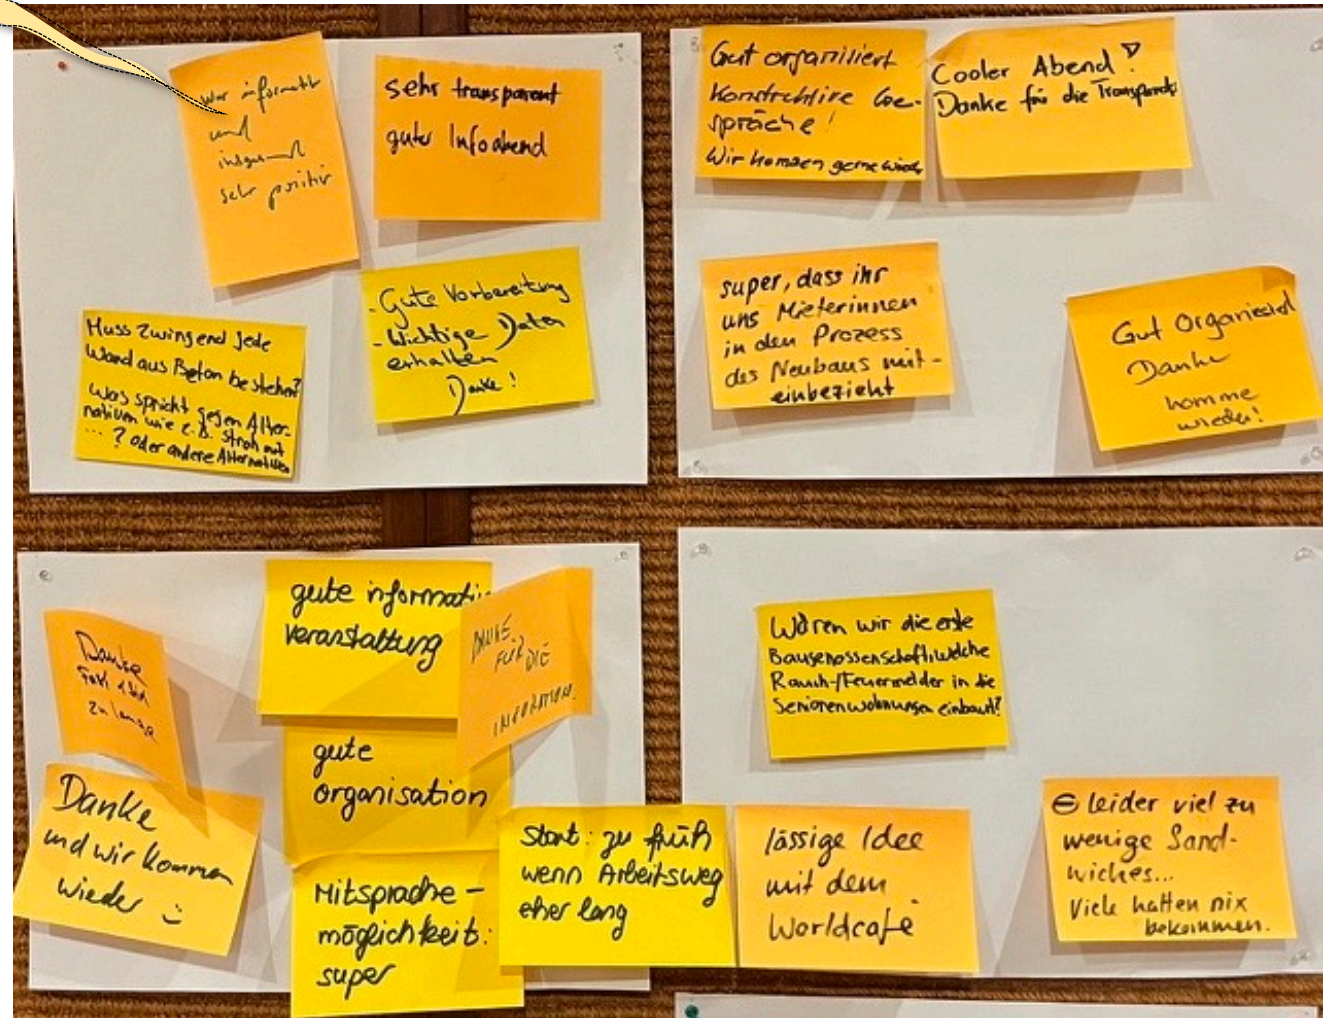 War informativ
und
insgesamt
sehr positiv
sehr transparent
guter Infoabend
Muss zwingend jede
Wand aus Beton bestehen?
Was spricht gegen Alter-
nativen wie z.B. Stroh mit
... ? oder andere Alternativen
- Gute Vorbereitung
- Wichtige Daten
erhalten
Danke!
Gut organisiert
Konstruktive Ge-
spräche!
Wir kommen gerne wieder
Cooler Abend!
Danke für die Transparenz
super, dass ihr
uns Mieterinnen
in den Prozess
des Neubaus mit-
einbezieht
Gut Organisiert
Danke
komme
wieder!
Danke
zu lange
Danke
und wir kommen
wieder
gute informativ
Veranstaltung
DANKE
FÜR DIE
INFORMATION.
gute
organisation
Mitsprache-
möglichkeit:
super
Start: zu früh
wenn Arbeitsweg
eher lang
lässige Idee
mit dem
Worldcafé
Wären wir die erste
Baugenossenschaft, welche
Rauch-/Feuermelder in die
Seniorenwohnungen einbaut?
⊖ leider viel zu
wenige Sand-
wiches...
Viele hatten nix
bekommen.